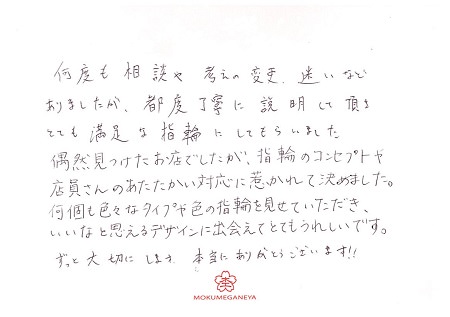 何度も相談や考えの変更、迷いなど
ありましたが、都度丁寧に説明して頂き
とても満足な指輪にしてもらいました
偶然見つけたお店でしたが、指輪のコンセプトや
店員さんのあたたかい対応に惹かれて決めました。
何個も色々なタイプや色の指輪を見せていただき、
いいなと思えるデザインに出会えてとてもうれしいです。
ずっと大切にします 本当にありがとうございます!!
MOKUMEGANEYA